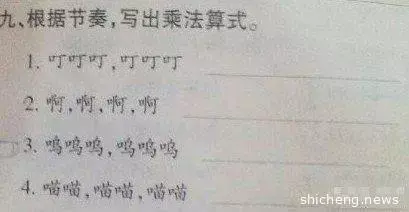 九、根据节奏,写出乘法算式。
1. 叮叮叮,叮叮叮
2. 啊,啊,啊,啊
3. 呜呜呜,呜呜呜
4. 喵喵,喵喵,喵喵
shicheng.news